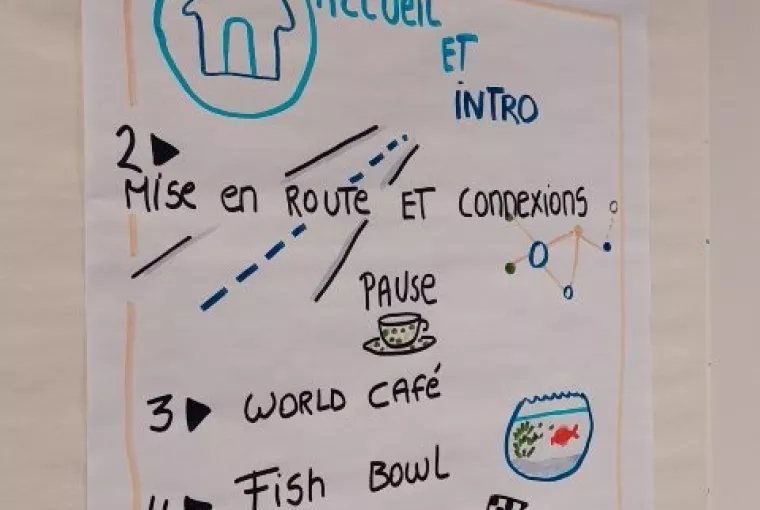 ACCUEIL
ET
INTRO
2
Mise en ROUTE ET connexions
PAUSE
3 WORLD CAFÉ
4 Fish BOWL